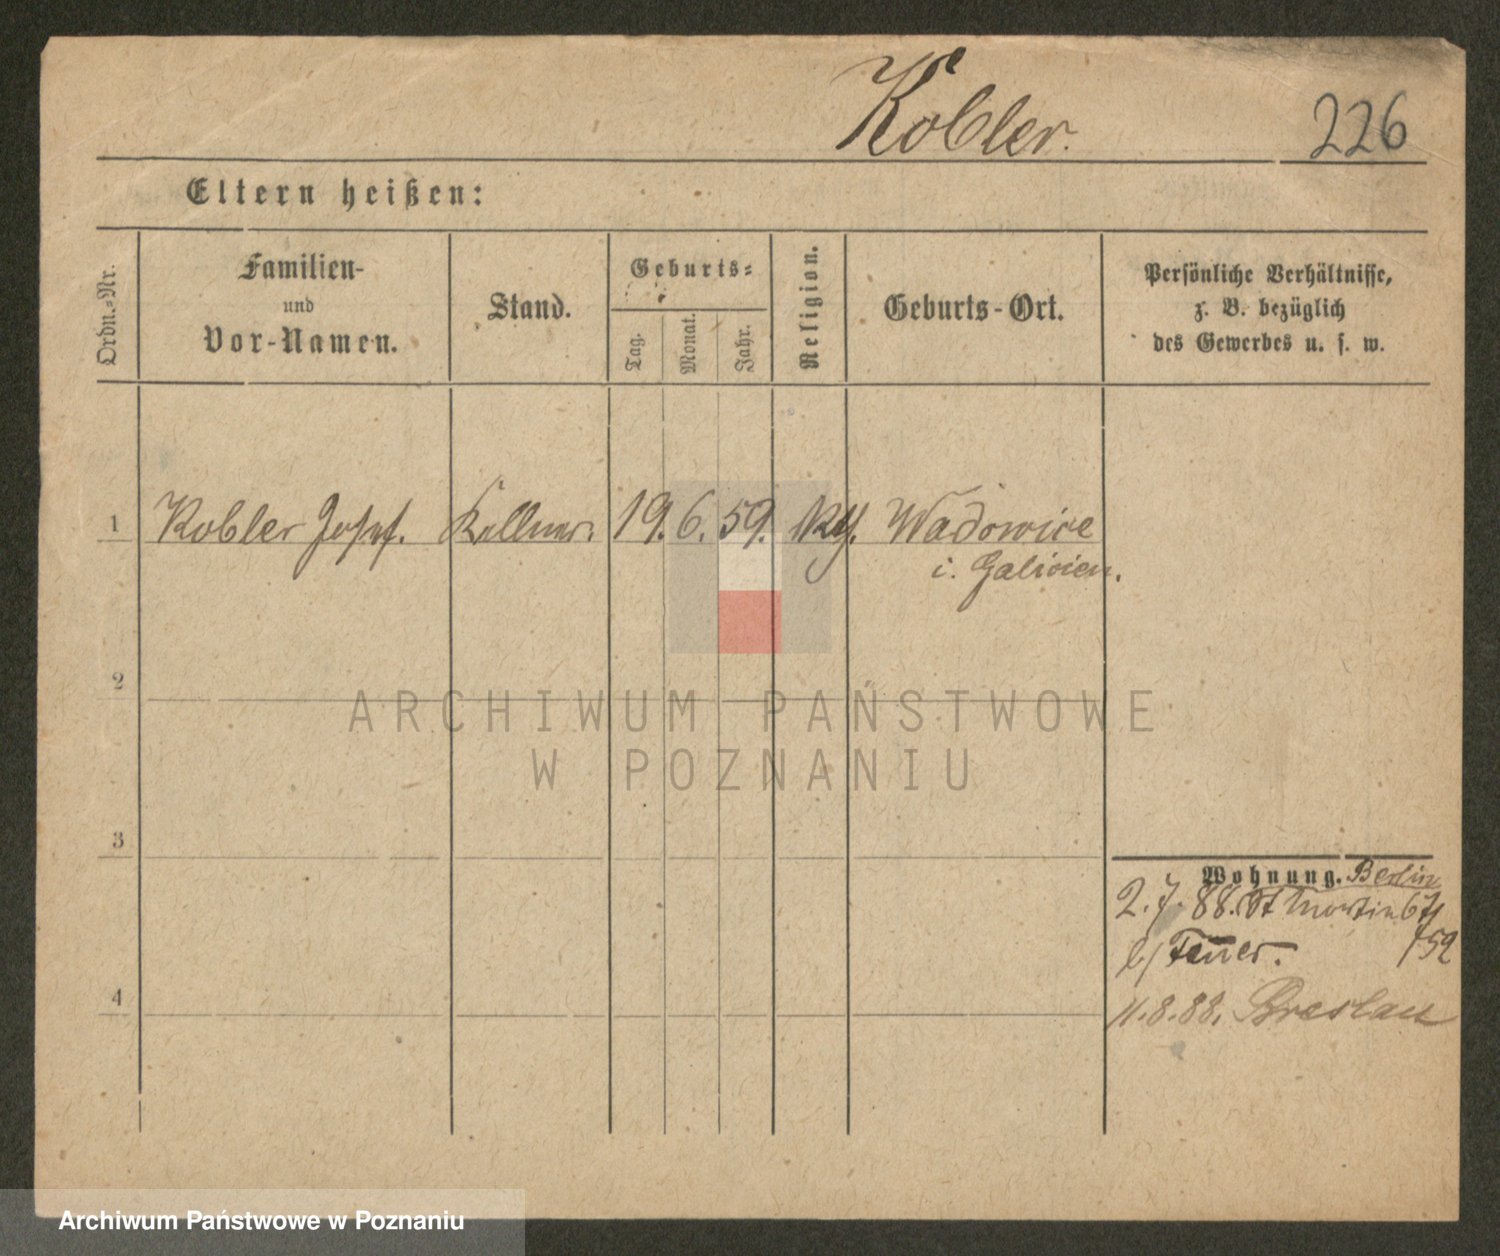 Kobler.
226
Eltern heißen:
Ordn.=Nr.
Familien-
und
Vor-Namen.
Stand.
Geburts=
Tag.
Monat.
Jahr.
Religion.
Geburts-Ort.
Persönliche Verhältnisse,
z. B. bezüglich
des Gewerbes u. s. w.
1 Kobler Josef. Kellner. 19. 6. 59. kth. Wadowice
i. Galicien.
2
ARCHIWUM PAŃSTWOWE
W POZNANIU
3
Wohnung. Berlin
2.7.88. St Martin 67/
b/
11.8.88. Breslau
4
Archiwum Państwowe w Poznaniu